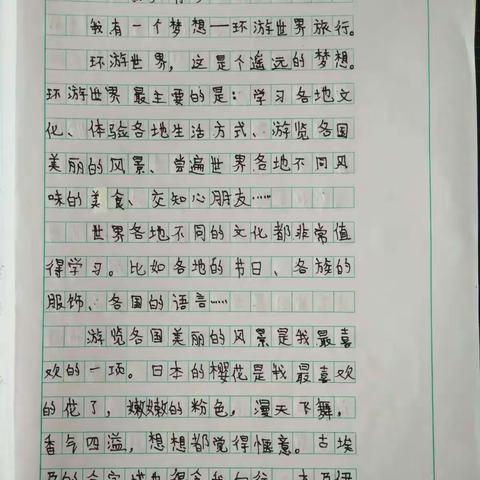 我有一个梦想——环游世界旅行。
环游世界，这是个遥远的梦想。
环游世界最主要的是：学习各地文
化、体验各地生活方式、游览各国
美丽的风景、尝遍世界各地不同风
味的美食、交知心朋友……
世界各地不同的文化都非常值
得学习。比如各地的节日、各族的
服饰、各国的语言……
游览各国美丽的风景是我最喜
欢的一项。日本的樱花是我最喜欢
的花了，嫩嫩的粉色，漫天飞舞，
香气四溢，想想都觉得惬意。古埃